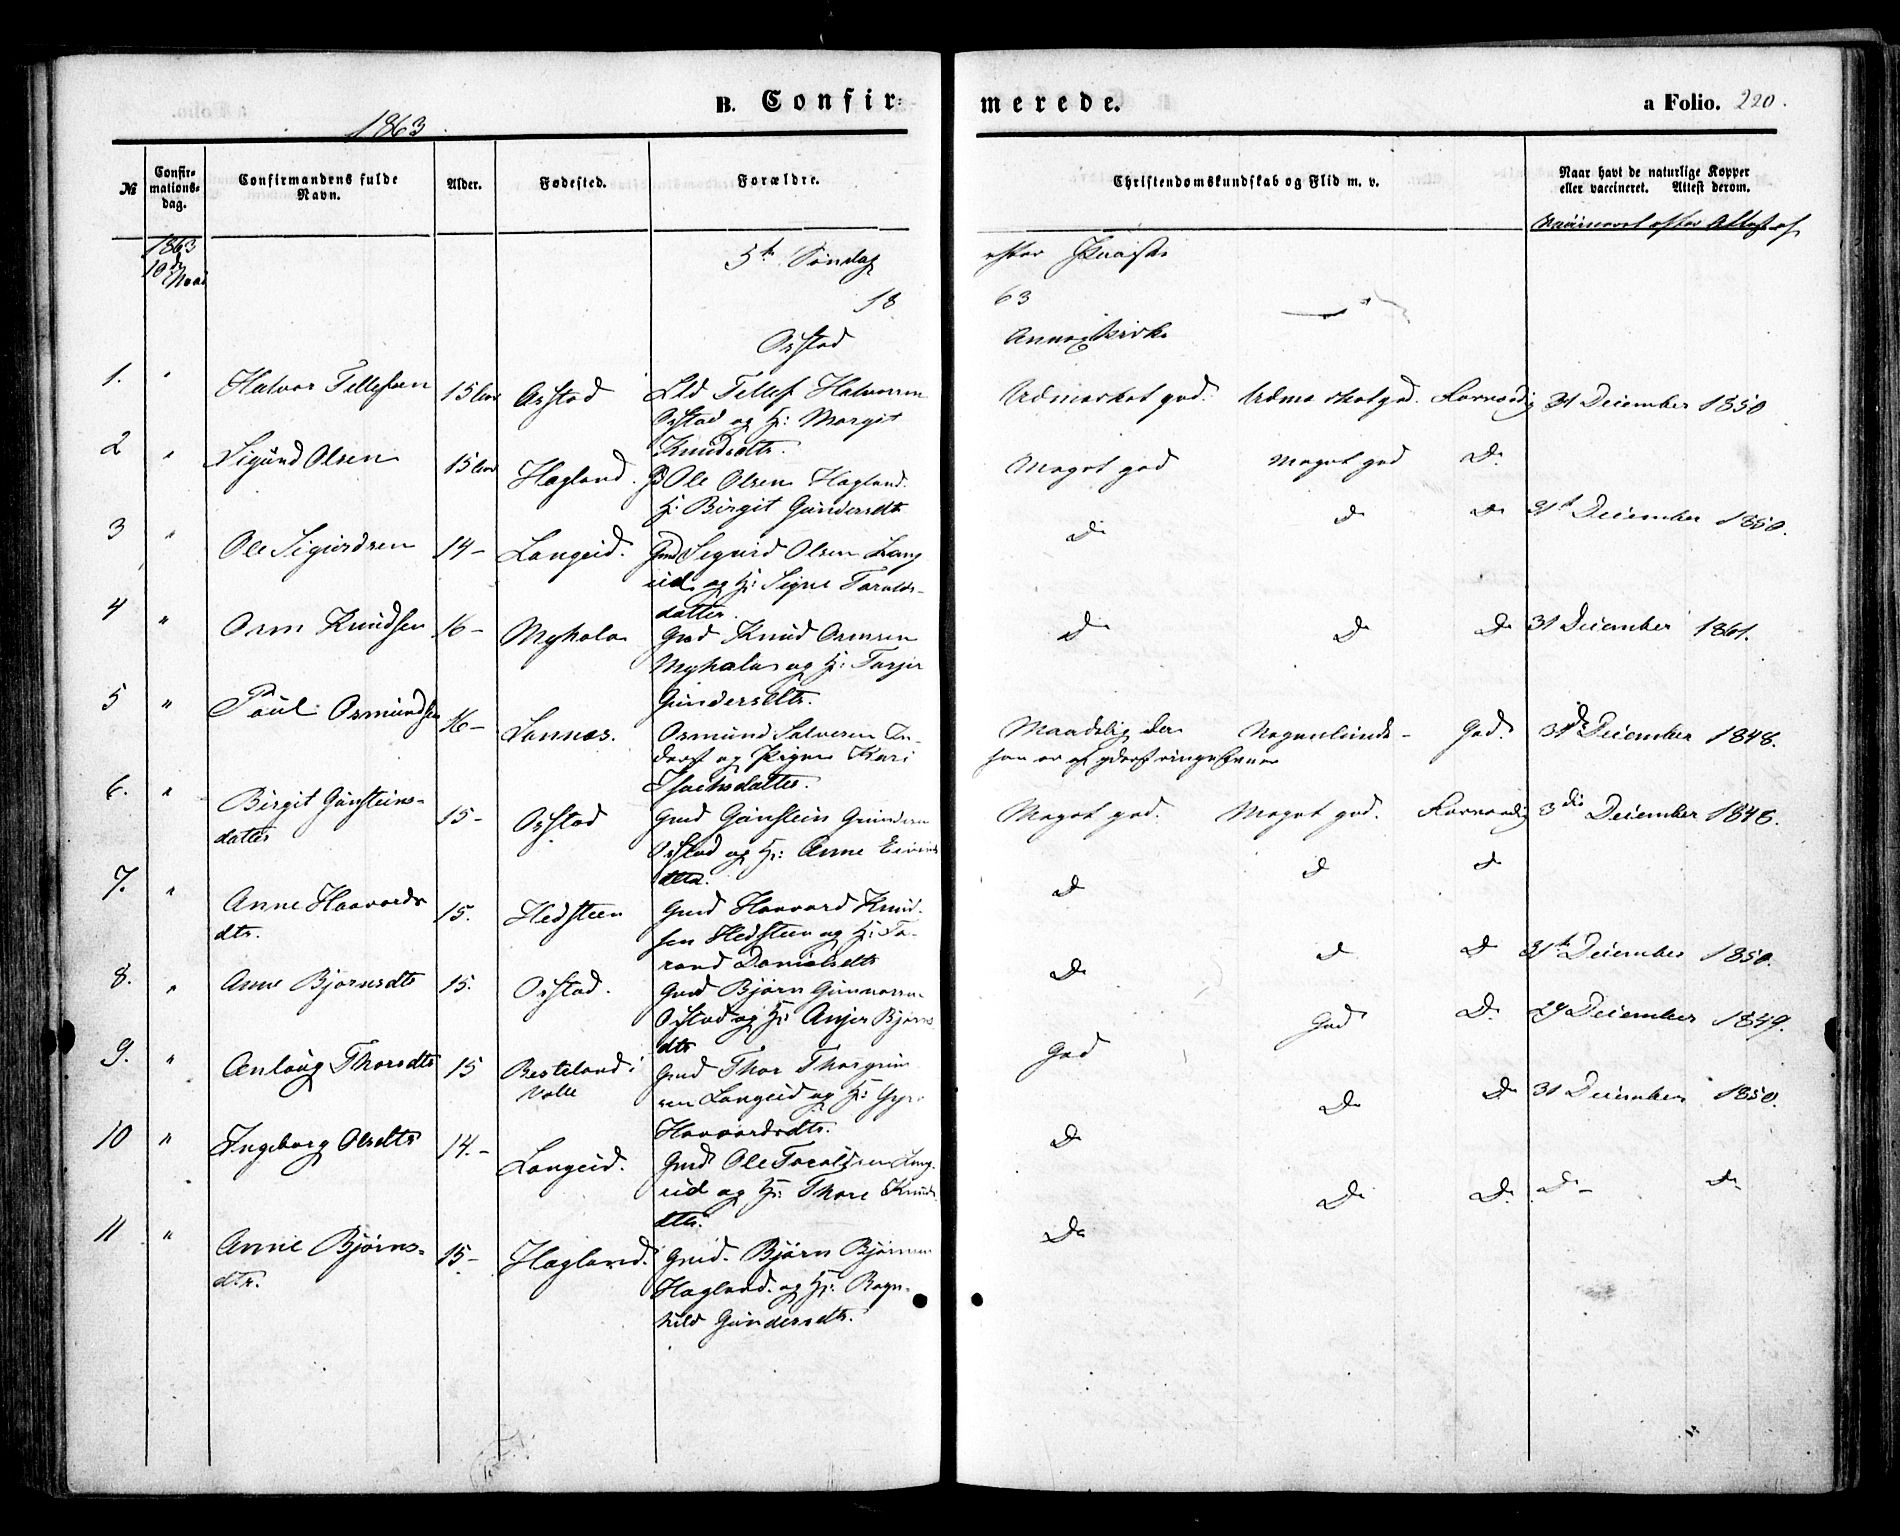 B. Confir-
merede.
a Folio. 220.
1863.
№
Confir-
mations-
dag.
Confirmandens fulde
Navn.
Alder.
Fødested.
Forældre.
Christendomskundskab og Flid m. v.
Naar havt de naturlige Kopper
eller vaccineret. Attest derom.
Vaccineret efter Attest af
1863
10de Mai
5te Søndag
efter Paaske
18
63
Ostad
Annexkirke
1.
Halvor Tellefsen
15
Ostad
Tellef Halvorsen
Ostad og H: Margit
Knudsdtr.
Udmærket god.
Udmærket god.
31 December 1850
2
Sigurd Olsen
15
Hagland.
Ole Olsen Hagland.
H: Birgit Gundersdtr
Meget god
Meget god
Do
31te December 1850.
3
"
Ole Sigurdsen
14-
Langeid.
Gmd Sigurd Olsen Lang
eid og H: Signe Taralds-
datter.
Do
Do
Do
4
"
Orm Knudsen
16-
Myhala
Gmd Knud Ormsen
Myhala og H: Tarjer
Gundersdtr.
Do
Do
Do
31 December 1861.
5
"
Paul Osmundsen
16-
Lannes.
Osmund Salvesen
og Pigen Kari
Isachsdatter.
Maadelig
Nogenlunde-
God.
31 December 1848.
6.
"
Birgit Gunsteins-
datter
15-
Ostad
Gmd Gunstein Gundersen
Ostad og H: Anne Eivinds
dtr.
Meget god.
Meget god.
3die December 1848.
7.
"
Anne Haavards
dtr.
15.
Hedsteen
Gmd Haavard Knud-
sen Hedsteen og H: Ta-
rand Danielsdtr
Do
Do
Do
8.
"
Anne Bjørnsdtr
15.
Ostad.
Gmd Bjørn Gunnarsen
Ostad og H: Anjer Bjørns
dtr
Do
Do
Do
31te December 1850.
9.
"
Anlaug Thorsdtr
15
Besteland i
Valle
Gmd Thor Thorgrim
sen Langeid og H: Gyro
Haavardsdtr.
God
God
Do
29 December 1849.
10
"
Ingeborg Olsdtr
14.-
Langeid.
Gmd Ole Taraldsen Lang
eid og H: Thore Knuds
dtr.
Do
Do
Do
31 December 1850.
11
"
Anne Bjørns-
dtr.
15-
Hagland.
Gmd. Bjørn Bjørnsen
Hagland. og H: Ragn-
hild Gundersdtr.
Do
Do
Do
Do-
Do